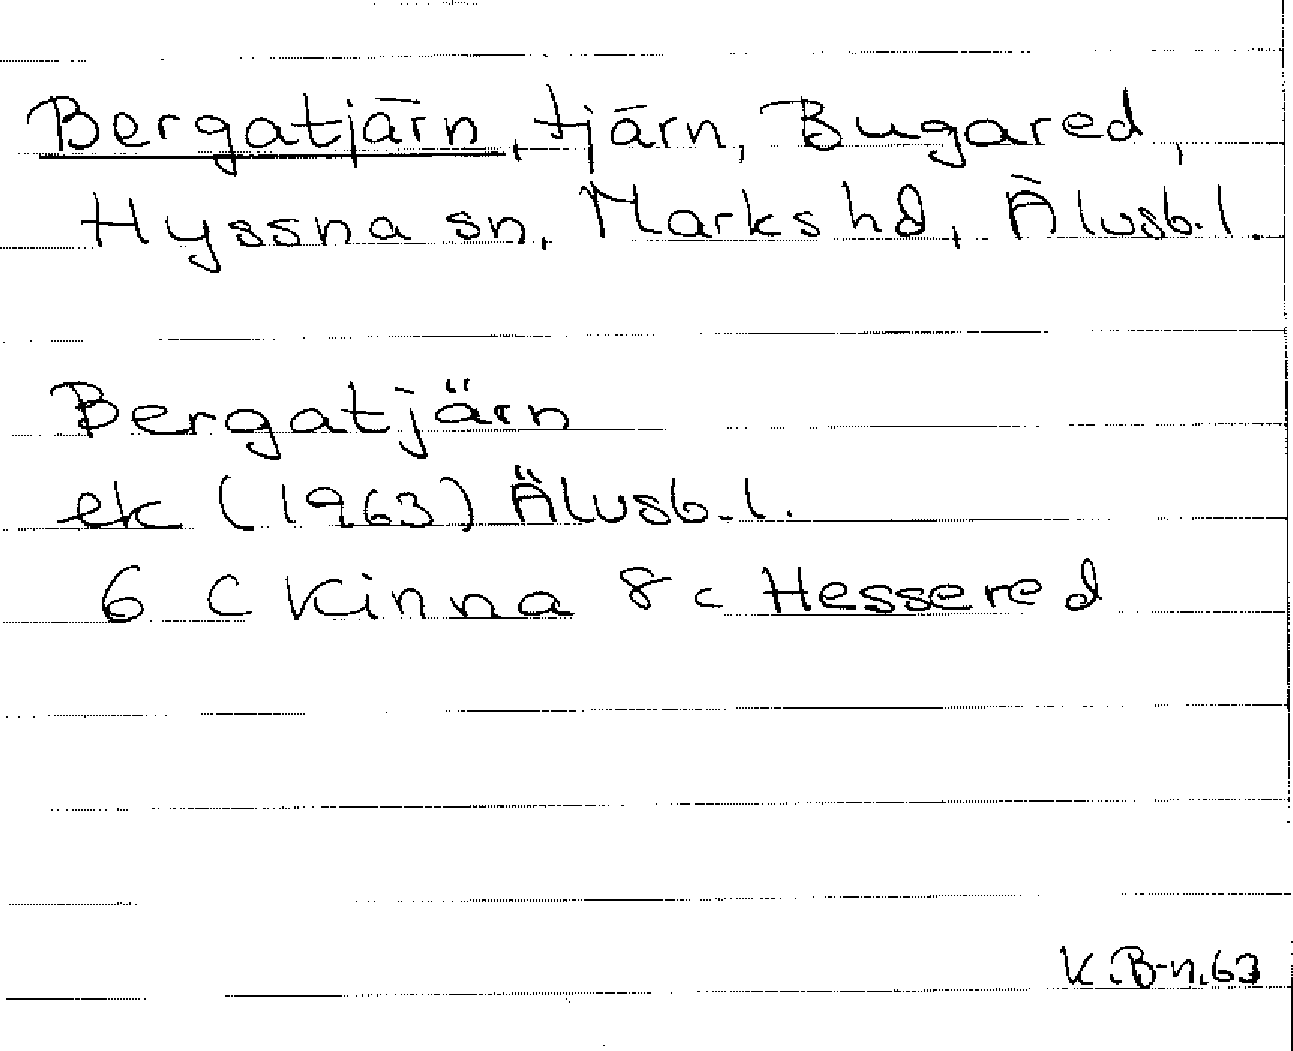 Bergatjärn, tjärn, Bugared,
Hyssna sn, Marks hd, Älvsb.l.
Bergatjärn
ek (1963) Älvsb.l.
6 C Kinna 8 c Hessered
K.B-n.63